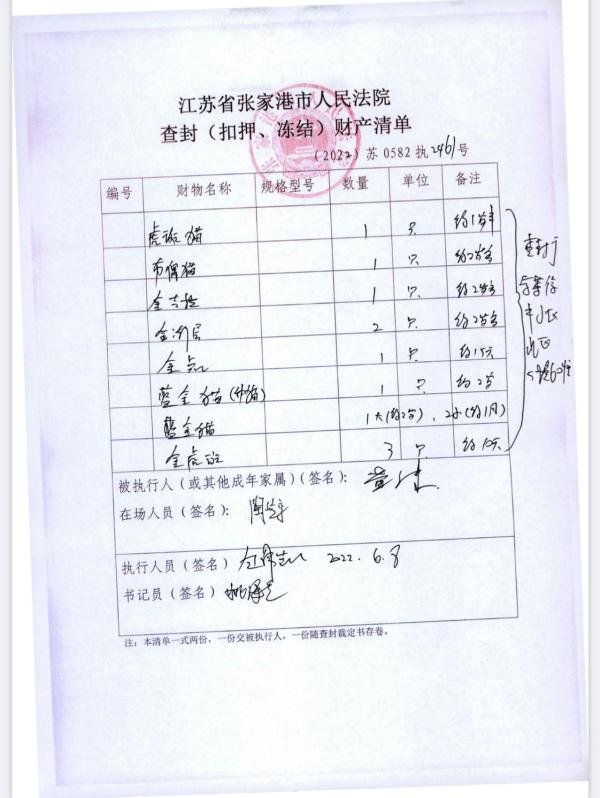 江苏省张家港市人民法院
查封（扣押、冻结）财产清单
（2022）苏 0582 执2461号
编号 财物名称 规格型号 数量 单位 备注
虎斑猫 1 只 约1岁半
布偶猫 1 只 约2岁多
金吉拉 1 只 约2岁多
金渐层 2 只 约2岁多
金点 1 只 约15天
蓝金猫 1 只 约2岁
蓝金猫 1大(约2岁)，2小(约1月)
金虎斑 3 只 约10天
查封于
被执行人（或其他成年家属）（签名）：
在场人员（签名）：
执行人员（签名） 2022.6.8
书记员（签名）
注：本清单一式两份，一份交被执行人，一份随查封裁定书存卷。